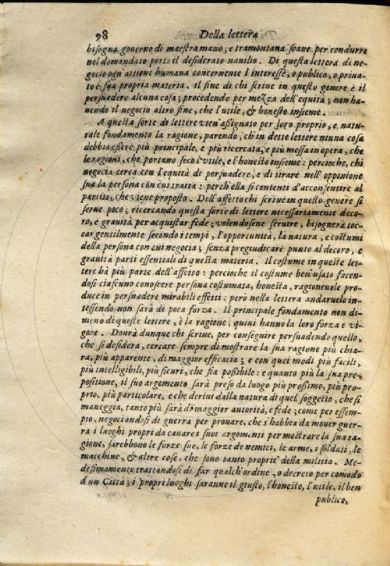 98 Della lettera
bisogna governo di maestra mano; e tramontana soave per condurre
nel domandato porto il desiderato navilio. Di questa lettera di ne-
gocio ogni attione humana concernente l'interesse, ò publico, ò priua-
to è sua propria materia. Il fine di chi scriue in questo genere è il
persuadere alcuna cosa; procedendo per mezzo dell'equità; non ha-
uendo il negocio altro fine, che l'utile, & honesto insieme.
A questa sorte di lettere vien assignato per loro proprio, e natu-
rale fondamento la ragione, parendo, ch'in dette lettere niuna cosa
debbia essere più principale, e più ricercata, e più messa in opera, che
le ragioni, che portano seco l'utile, e l'honesto insieme: percioche, chi
negocia cerca con l'equità di persuadere, e di tirare nell'oppinione
sua la persona con cui tratta: perch'ella si contenti d'acconsentire al
partito, che viene proposto. Dell'affetto chi scriue in questo genere si
serue poco; ricercando queste sorte di lettere necessariamente deco-
ro, e grauità per acquistar fede, volendosene seruire, bisognerà toc-
car gentilmente secondo i tempi, l'opportunità, la natura, e costumi
della persona con cui negocia, senza pregiudicare punto al decoro, e
grauità parti essentiali di questa materia. Il costume in queste let-
tere hà più parte dell'affetto: percioche il costume ben usato facen-
dosi ciascuno conoscere persona costumata, honesta, ragioneuole pro-
duce in persuadere mirabili effetti: però nella lettera andaruelo in-
tessendo non sarà di poca forza. Il principale fondamento non di-
meno di queste lettere, è la ragione; quiui hanno la loro forza e vi-
gore. Dourà dunque chi scriue, per conseguire persuadendo quello,
che si desidera, cercare sempre di mostrare la sua ragione più chia-
ra, più apparente, di maggior efficacia; e con quei modi più facili,
più intelligibili, più sicuri, che sia possibile: e quanto più la sua pro-
positione, il suo argomento sarà preso da luogo più prossimo, più pro-
prio, più particolare, e che deriui dalla natura di quel soggetto, che si
maneggia, tanto più sarà di maggior autorità, e fede; come per essem-
pio, negociandosi di guerra per prouare, che s'habbia da mouer guer-
ra i luoghi propri da cauare i suoi argomenti per mostrar la sua ra-
gione, sarebbono le forze sue, le forze de nemici, le arme, i soldati, le
machine, & altre cose, che sono tanto proprie della militia. Me-
desimamente trattandosi di far qualch'ordine, o decreto per comodo
d'un Città; i propri luoghi saranno il giusto, l'honesto, l'utile, il ben
publico,